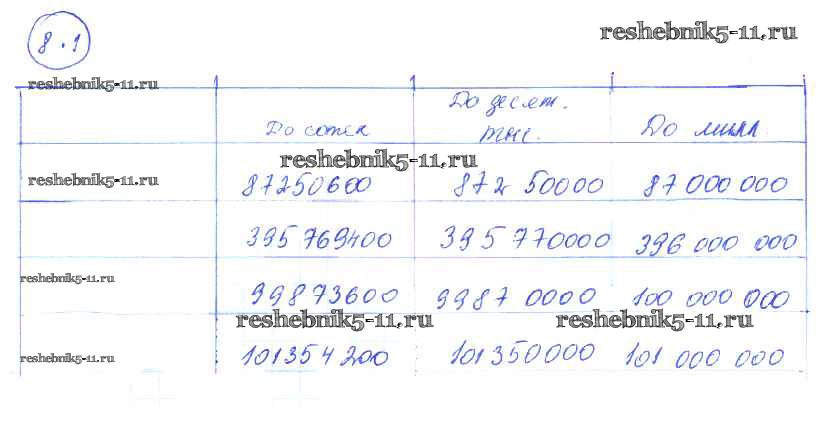 8.1
reshebnik5-11.ru
reshebnik5-11.ru
До десят.
До сотен тыс. До милл.
reshebnik5-11.ru
reshebnik5-11.ru 87250600 87250000 87 000 000
395 769400 395 770000 396 000 000
reshebnik5-11.ru
99873600 9987 0000 100 000 000
reshebnik5-11.ru reshebnik5-11.ru
reshebnik5-11.ru 101354200 101350000 101 000 000